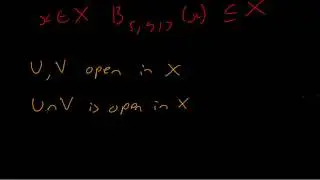 x ∈ X B (x) ⊆ X
U, V open in X
U ∩ V is open in X